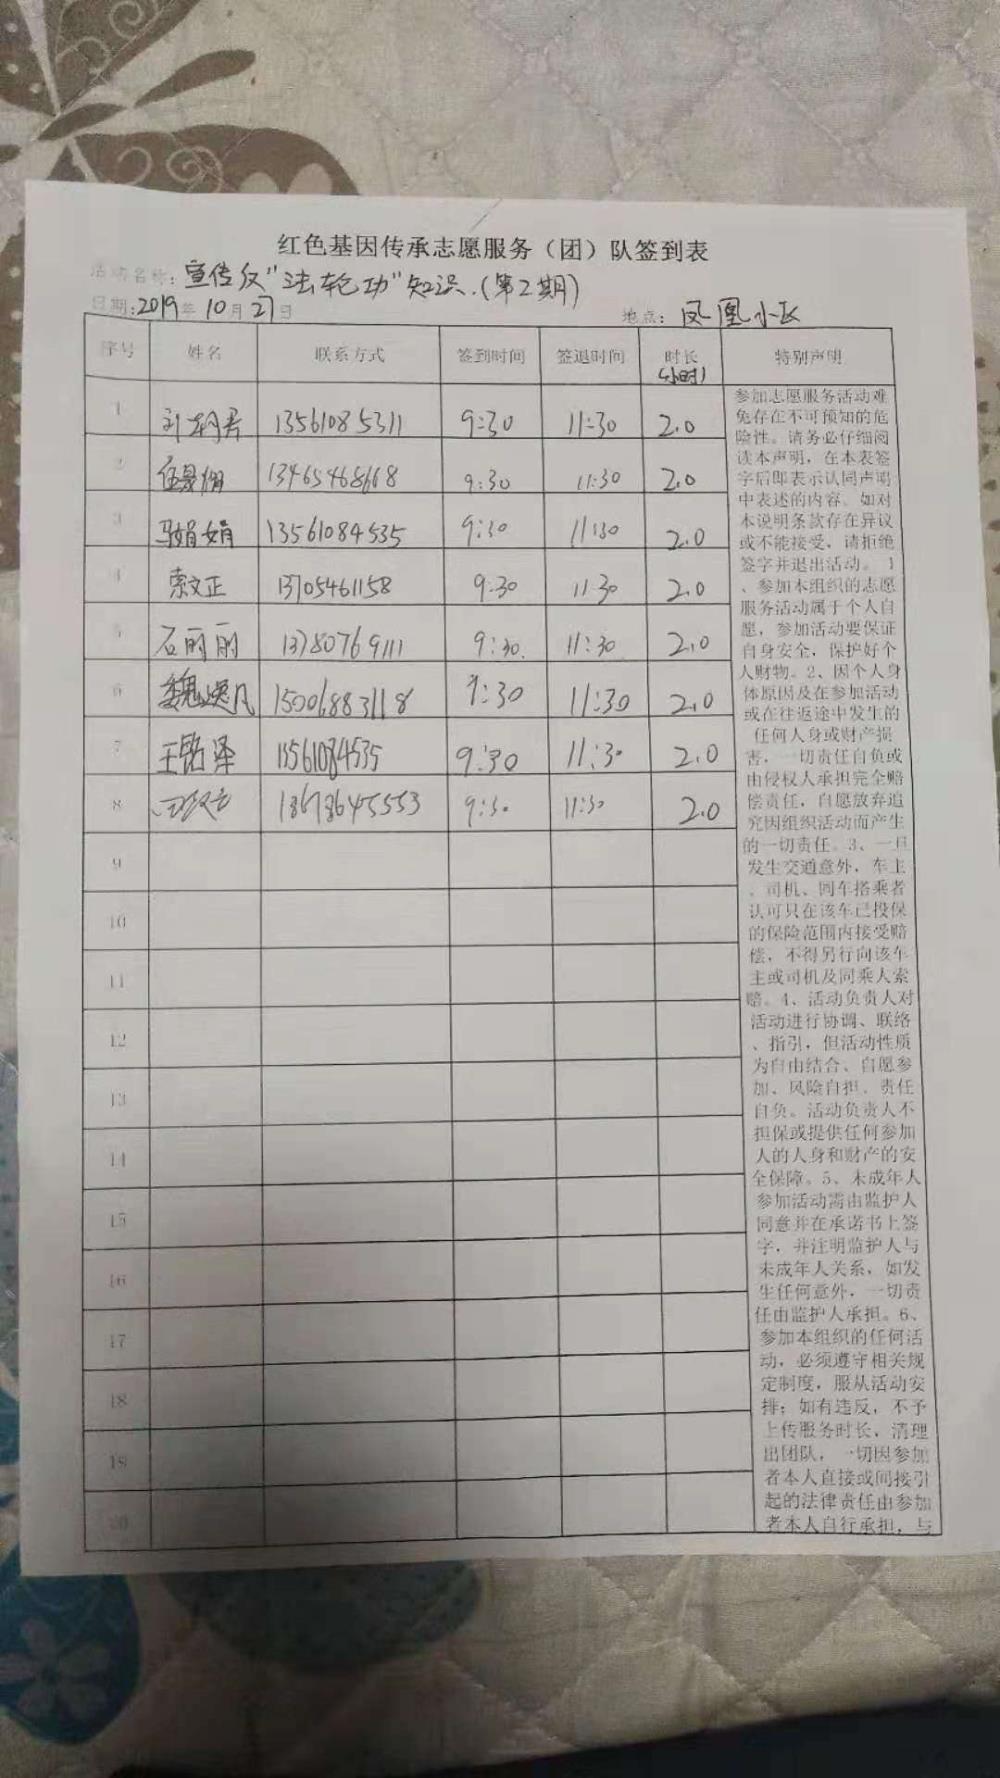 红色基因传承志愿服务（团）队签到表
活动名称：宣传反"法轮功"知识.(第2期)
日期:2019年10月27日 地点：凤凰小区
序号 姓名 联系方式 签到时间 签退时间 时长(小时) 特别声明
1 13561085311 9:30 11:30 2.0
2 13465468668 9:30 11:30 2.0
3 马娟娟 13561084535 9:30 11:30 2.0
4 索文正 13705461158 9:30 11:30 2.0
5 石丽丽 13780769111 9:30 11:30 2.0
6 魏逸凡 15006883118 9:30 11:30 2.0
7 王铭泽 13561084535 9:30 11:30 2.0
8 18678645553 9:30 11:30 2.0
9
10
11
12
13
14
15
16
17
18
19
20
参加志愿服务活动难
免存在不可预知的危
险性。请务必仔细阅
读本声明，在本表签
字后即表示认同声明
中表述的内容。如对
本说明条款存在异议
或不能接受，请拒绝
签字并退出活动。1
、参加本组织的志愿
服务活动属于个人自
愿，参加活动要保证
自身安全，保护好个
人财物。2、因个人身
体原因及在参加活动
或在往返途中发生的
任何人身或财产损
害，一切责任自负或
由侵权人承担完全赔
偿责任，自愿放弃追
究因组织活动而产生
的一切责任。3、一旦
发生交通意外，车主
、司机、同车搭乘者
认可只在该车已投保
的保险范围内接受赔
偿，不得另行向该车
主或司机及同乘人索
赔。4、活动负责人对
活动进行协调、联络
、指引，但活动性质
为自由结合、自愿参
加、风险自担、责任
自负。活动负责人不
担保或提供任何参加
人的人身和财产的安
全保障。5、未成年人
参加活动需由监护人
同意并在承诺书上签
字，并注明监护人与
未成年人关系，如发
生任何意外，一切责
任由监护人承担。6、
参加本组织的任何活
动，必须遵守相关规
定制度，服从活动安
排；如有违反，不予
上传服务时长，清理
出团队，一切因参加
者本人直接或间接引
起的法律责任由参加
者本人自行承担，与